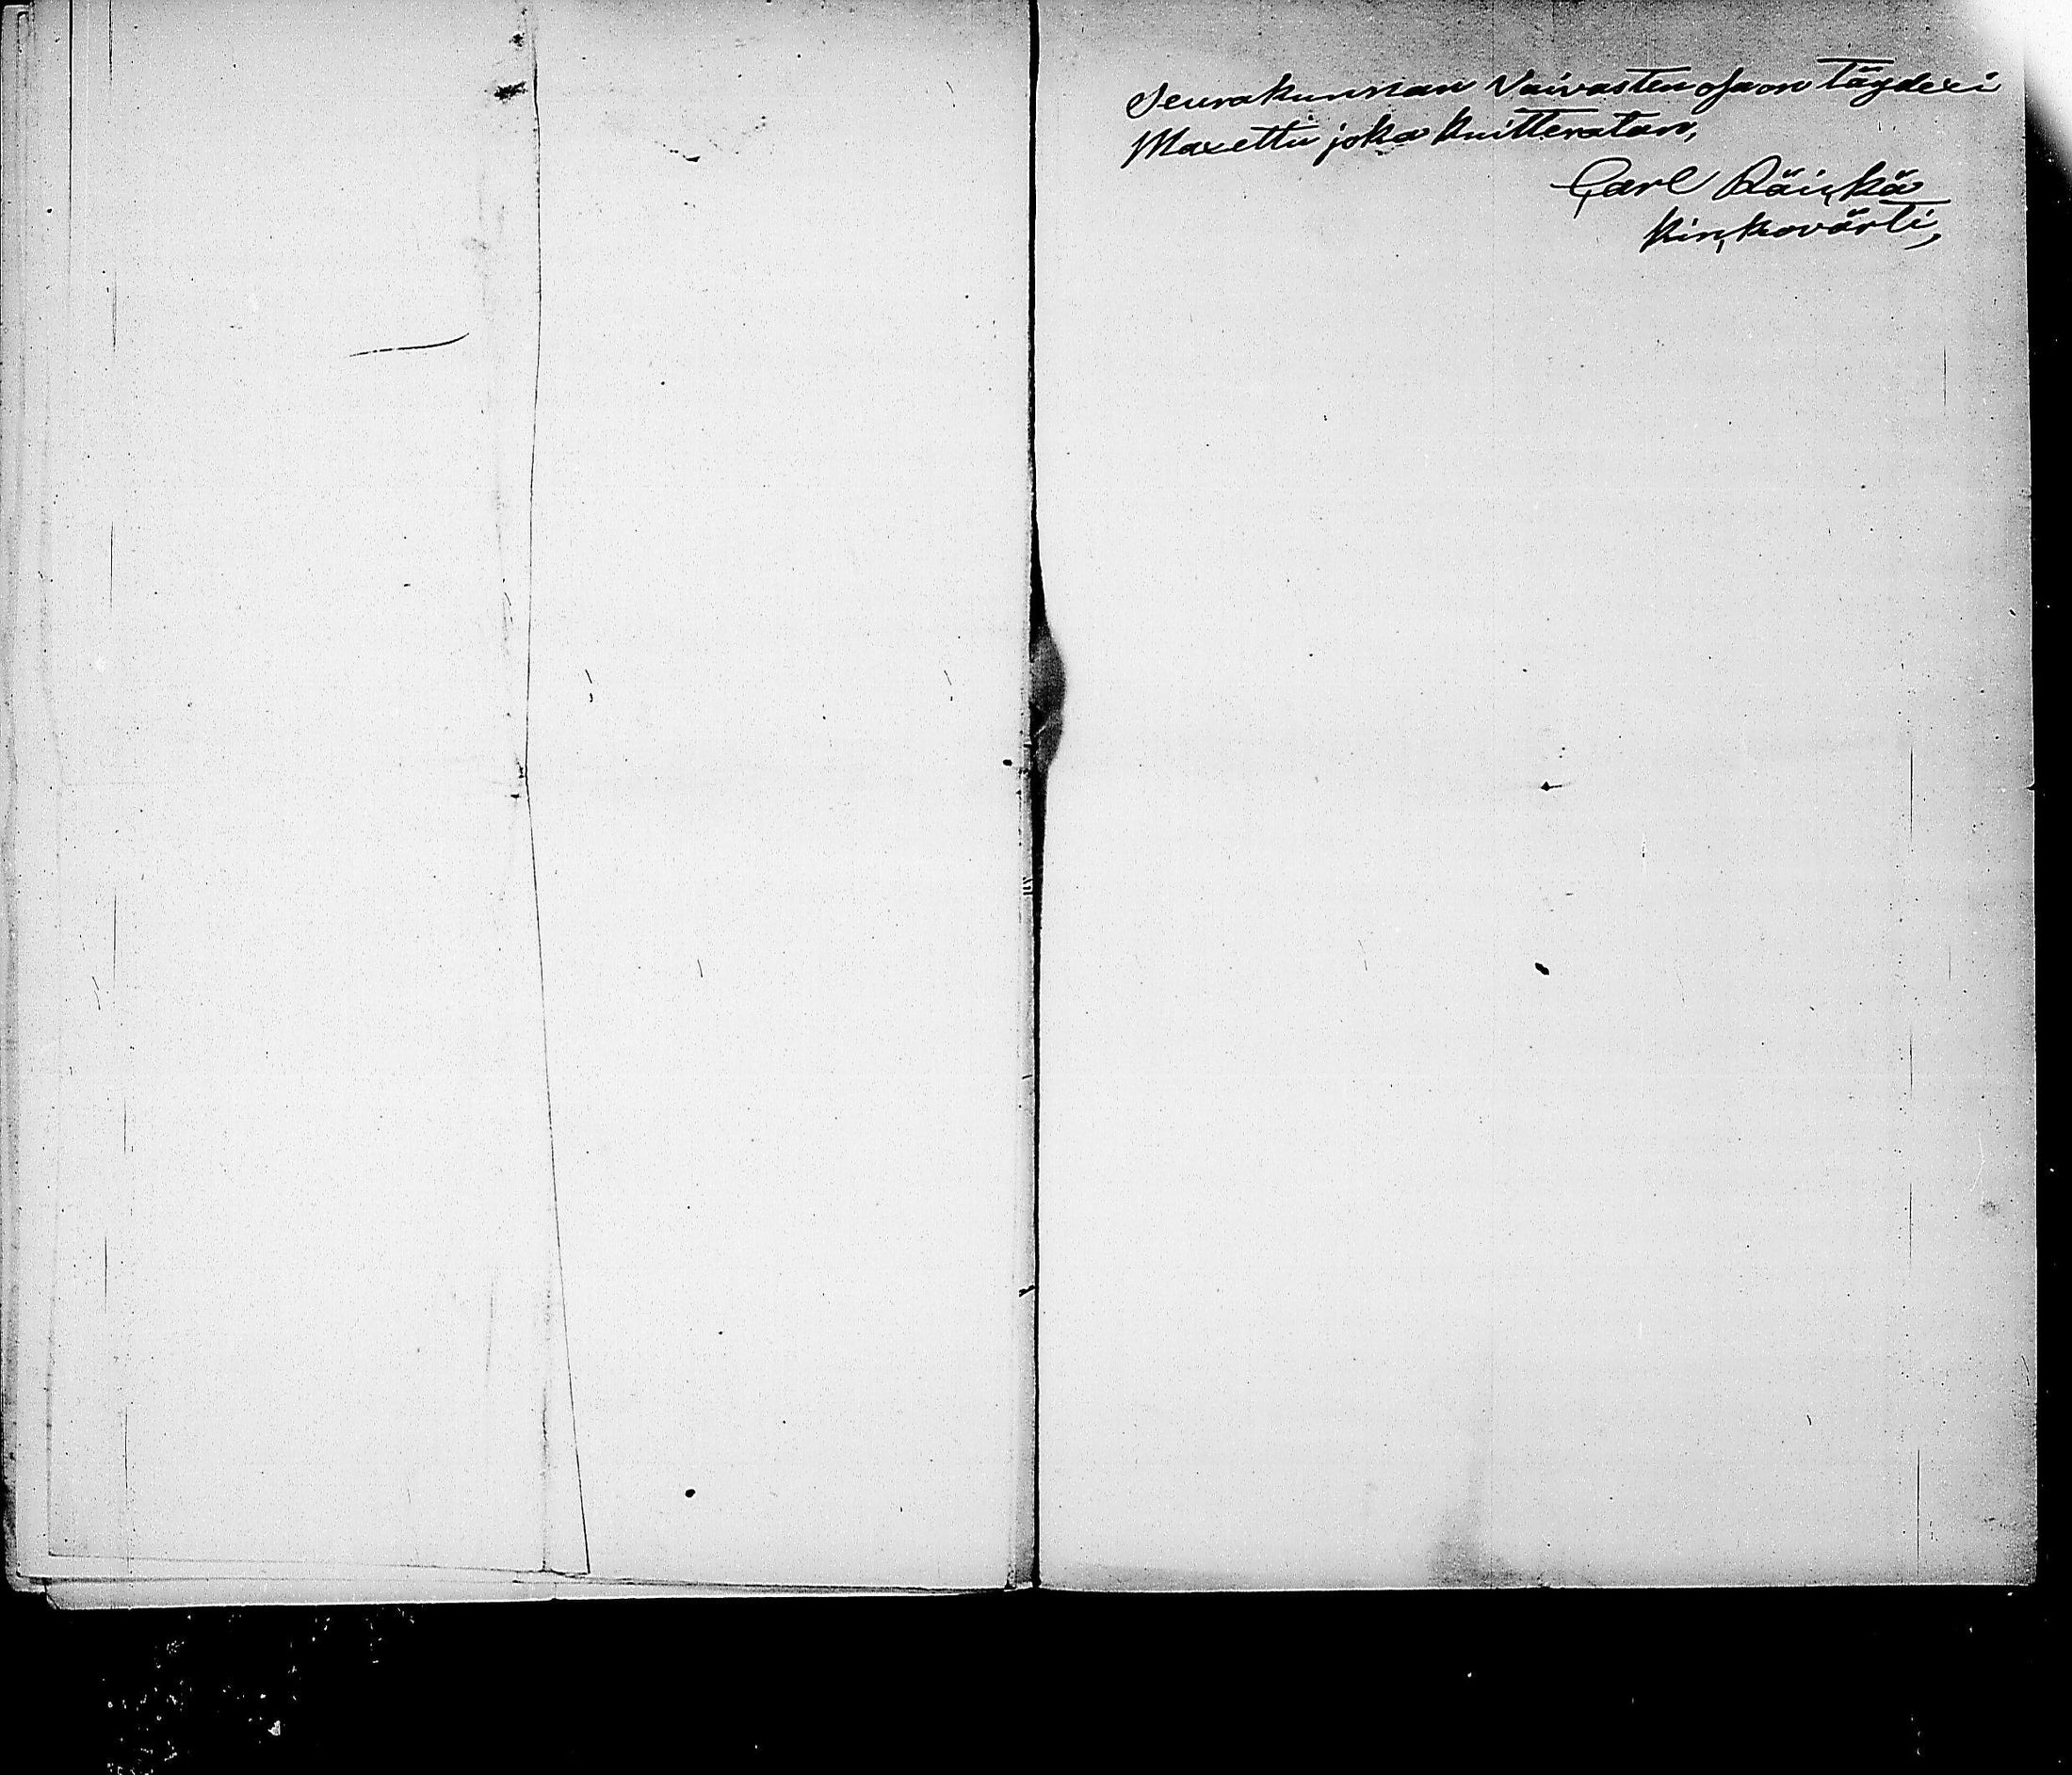 Seurakunnan Vaivasten osa on täydexi
Maxettu joka kuitteratan,
Carl Räikä
Kirkovärti,